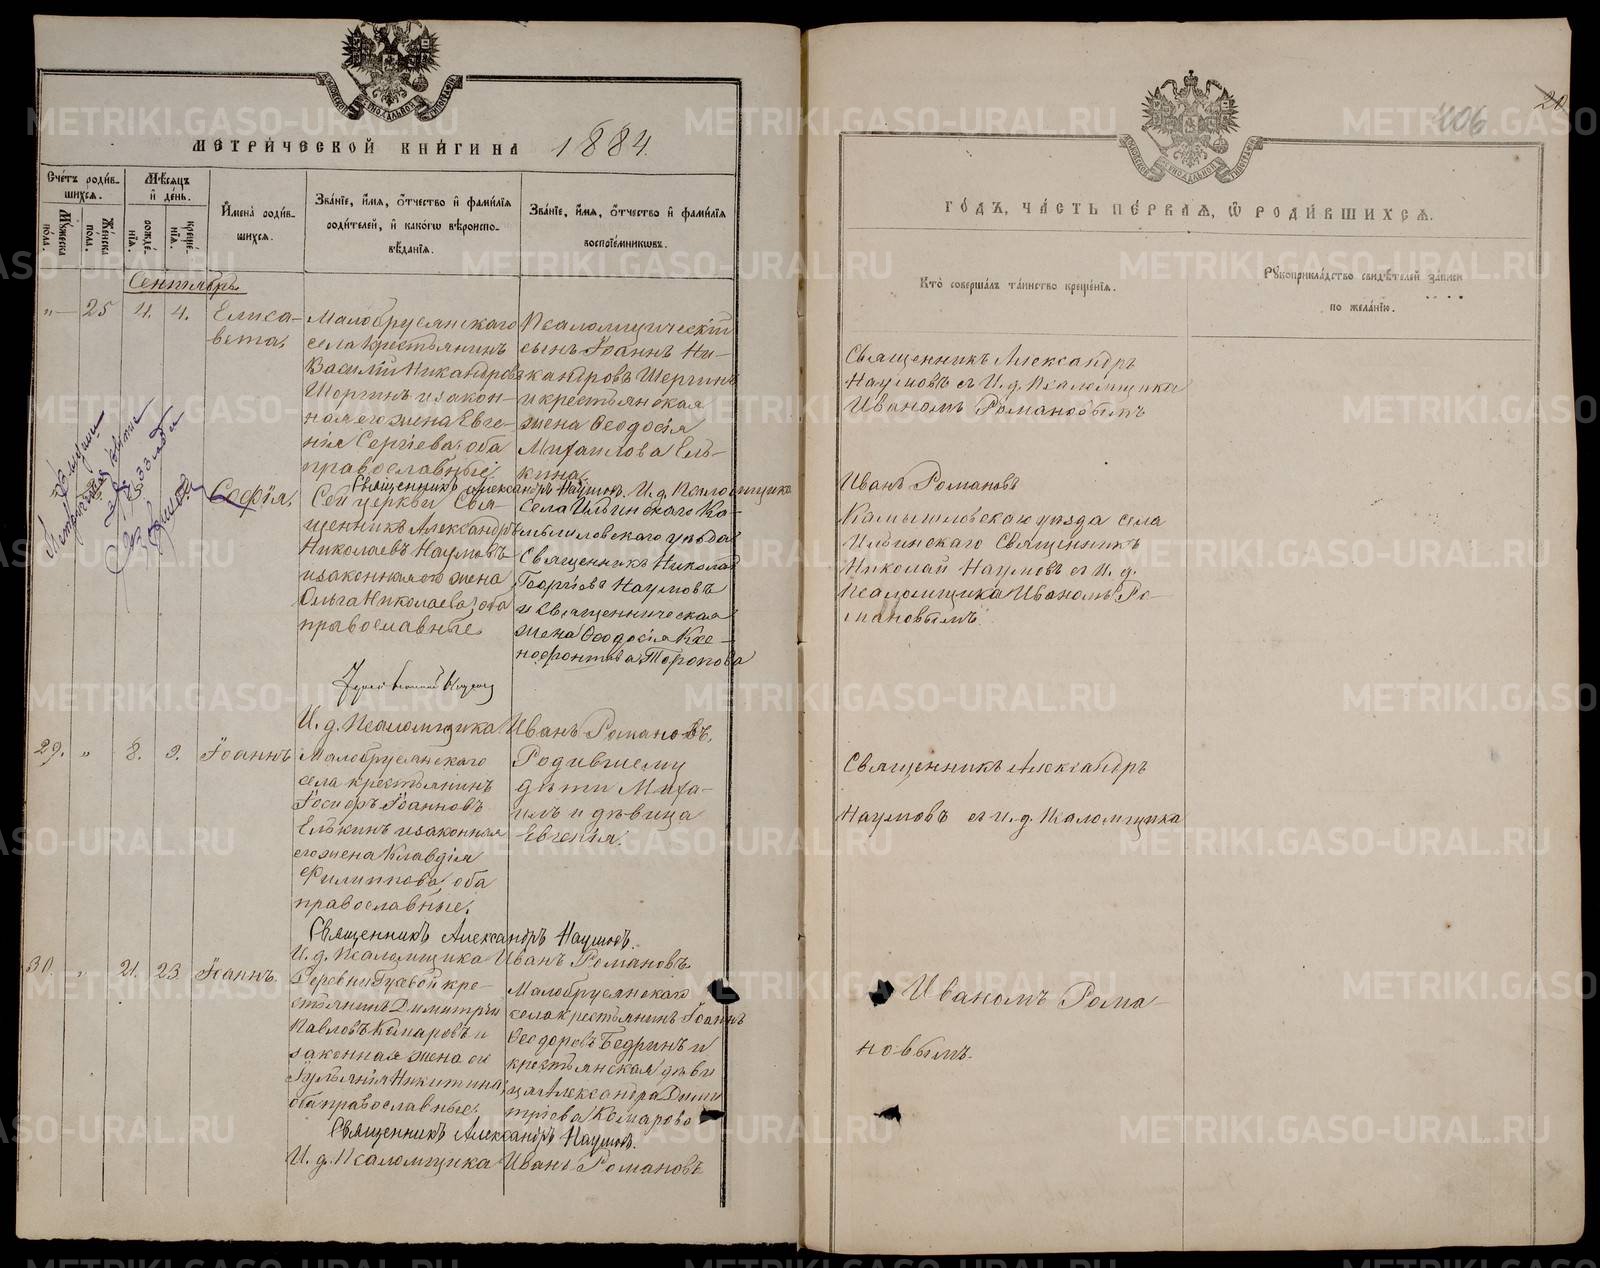 МЕТРИ́ЧЕСКОЙ КНИ́ГИ НА 1884.
Сче́тъ роди́в-
шихсѧ.
Мѣ́сѧцъ
и҆ де́нь.
Мꙋ́жеска
по́ла.
Же́нска
по́ла.
рожде́-
нїѧ.
креще́-
нїѧ.
И҆мена̀ роди́в-
шихсѧ.
Зва́нїе, и҆́мѧ, ѻ҆́тчество и҆ фами́лїѧ
роди́телей, и҆ како́гѡ вѣроиспо-
вѣ́данїѧ.
Зва́нїе, и҆́мѧ, ѻ҆́тчество и҆ фами́лїѧ
воспрїе́мникѡвъ.
Сентябрь
" 25 4. 4. Елиса-
вета,
Малобрусянскаго
села крестьянинъ
Василій Никандровъ
Шергинъ и закон-
ная его жена Евге-
нія Сергіева, оба
православные.
Псаломщическій
сынъ Іоаннъ Ни-
кандровъ Шергинъ
и крестьянская
жена Ѳеодосія
Михаилова Ель-
кина.
Священникъ Александръ Наумовъ. И. д. Псаломщика
София,
Сей церкви Свя-
щенникъ Александръ
Николаевъ Наумовъ
и законная его жена
Ольга Николаева, оба
православные
Села Ильинскаго Ка-
мышловскаго уѣзда
Священникъ Николай
Георгіевъ Наумовъ
и Священническая
жена Ѳеодосія Ксе-
нофонтова Топоркова
И. д. Псаломщика Иванъ Романовъ.
29. " 8. 9. Іоаннъ
Малобрусянскаго
села крестьянинъ
Іосифъ Іоанновъ
Елькинъ и законная
его жена Клавдія
Филиппова, оба
православные.
Родившему
дѣти Миха-
илъ и дѣвица
Евгенія.
Священникъ Александръ Наумовъ.
И. д. Псаломщика Иванъ Романовъ
30. " 21. 23 Іоаннъ.
Деревни Гусевой кре-
стьянинъ Димитрій
Павловъ Комаровъ и
законная жена ея
Никитина,
оба православные.
Малобрусянскаго
села крестьянинъ Іоаннъ
Ѳеодоровъ Бедринъ и
крестьянская дѣви
ца Александра Дими
тріева Комарова
Священникъ Александръ Наумовъ.
И. д. Псаломщика Иванъ Романовъ
406
20
ГО́ДЪ, ЧА́СТЬ ПЕ́РВАѦ, Ѡ҆ РОДИ́ВШИХСѦ.
Кто̀ соверша́лъ та́инство креще́нїѧ.
Рꙋкоприкла́дство свидѣ́телей за́писи
по жела́нїю.
Священникъ Александръ
Наумовъ съ И. д. Псаломщика
Иваномъ Романовымъ
Иванъ Романовъ
Камышловскаго уѣзда села
Ильинскаго Священникъ
Николай Наумовъ съ И. д.
Псаломщика Иваномъ Ро-
мановымъ
Священникъ Александръ
Наумовъ съ и. д. Псаломщика
Иваномъ Рома-
новымъ.
METRIKI.GASO-URAL.RU